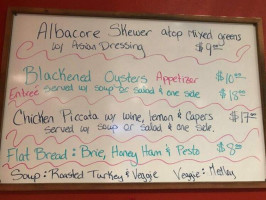 Albacore Skewer atop mixed greens
w/ Asian Dressing $9.00
Blackened Oysters Appetizer $10.00
Entree served w/ soup or salad & one side $18.00
Chicken Piccata w/ wine, lemon & Capers $17.00
served w/ soup or salad & one side.
Flat Bread: Brie, Honey Ham & Pesto $8.00
Soup: Roasted Turkey & Veggie Veggie: Medley